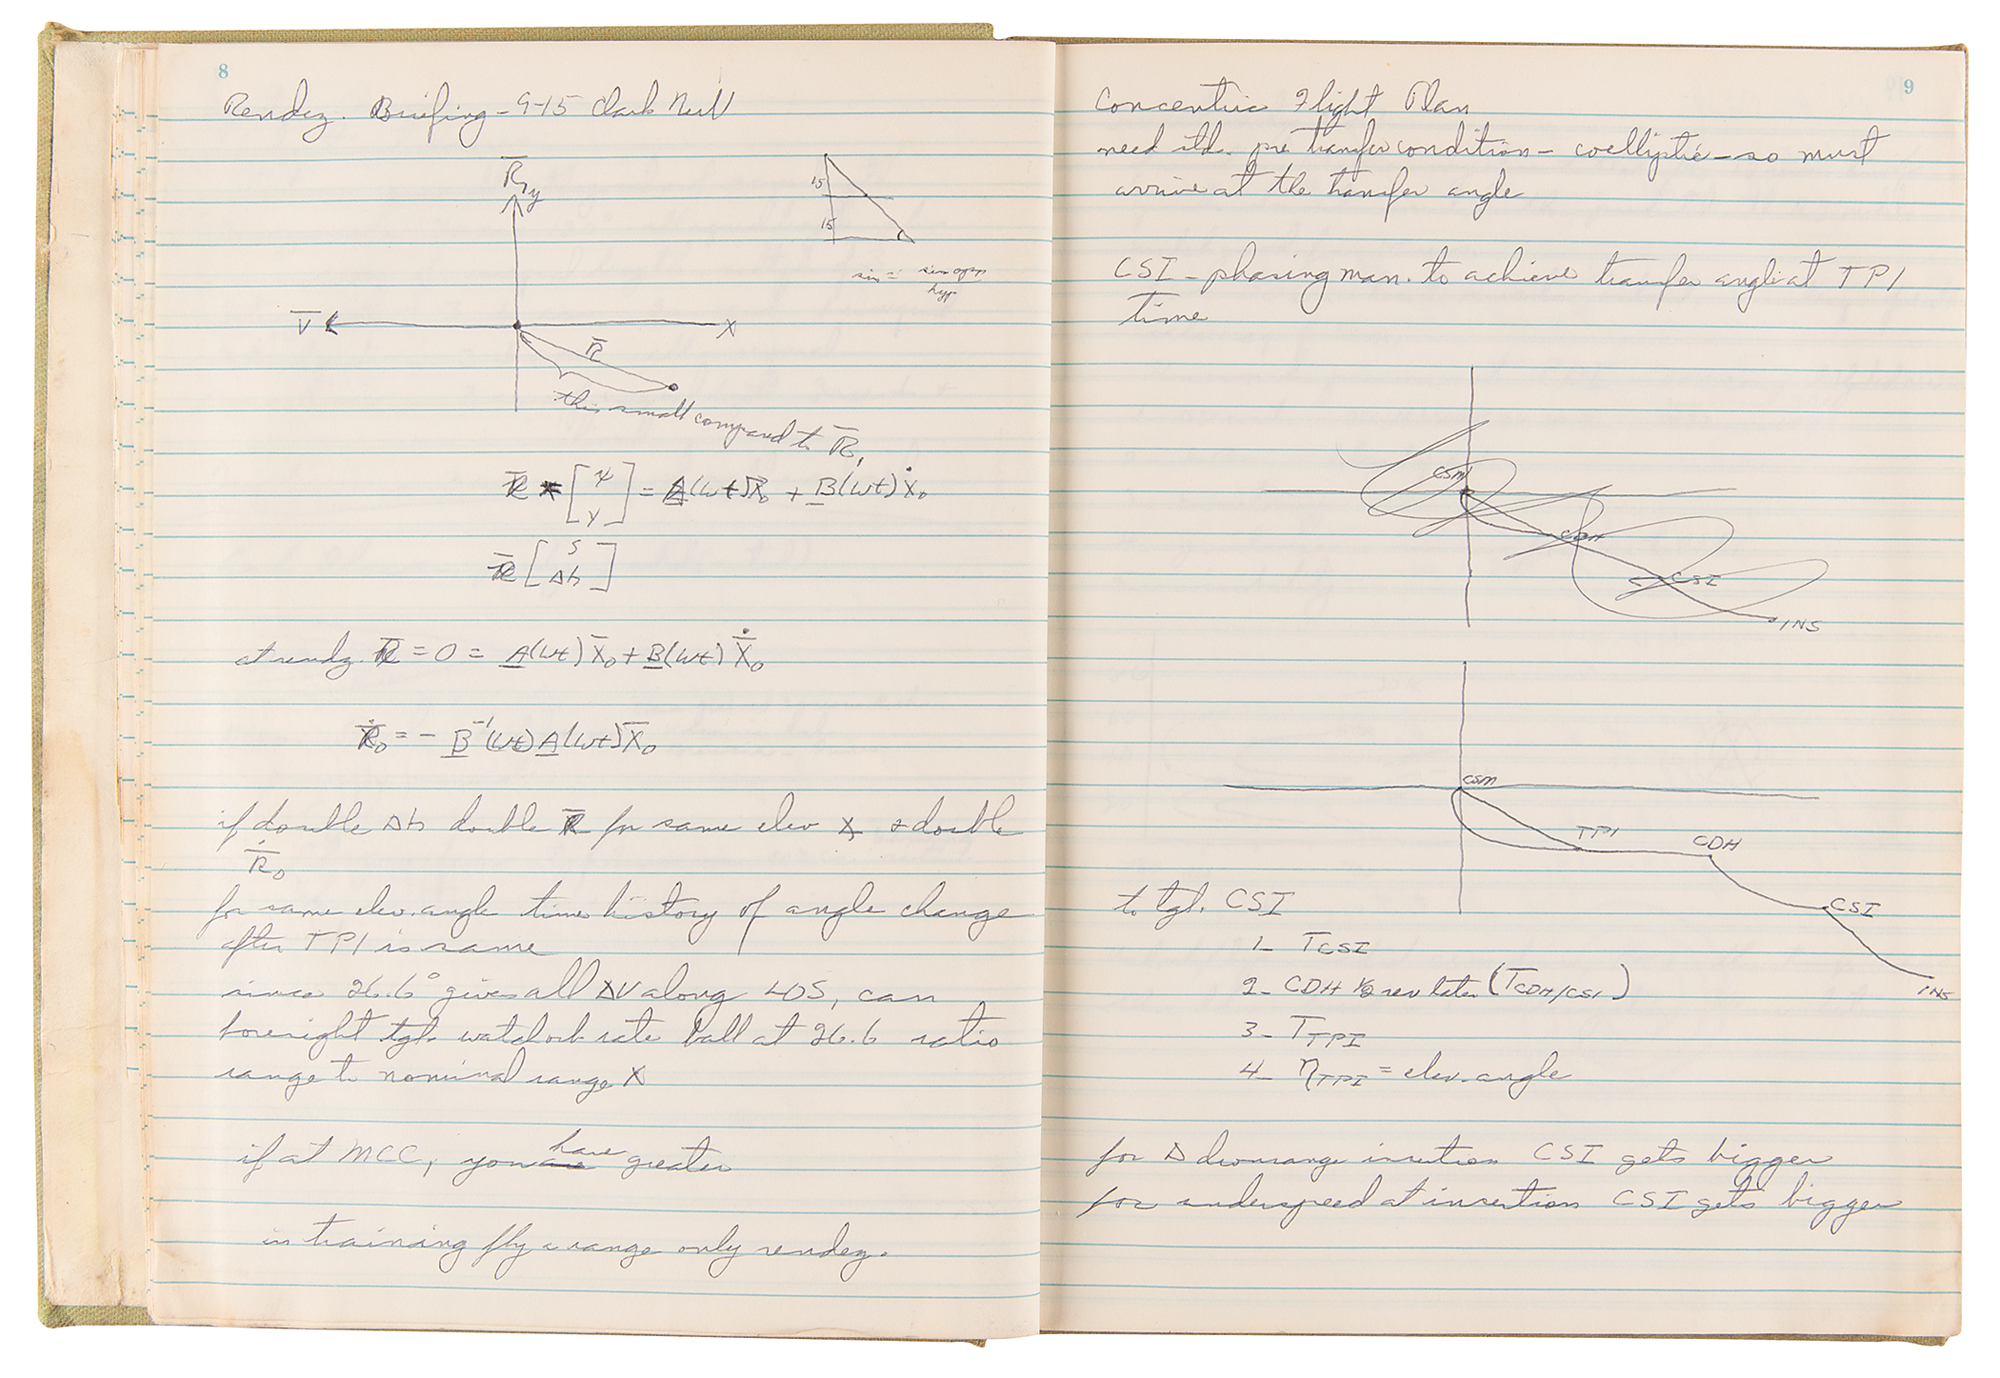 8
Rendez. Briefing - 9-15 Clark Neil
R y
15
15
sin = hyp
V X
R
this small compared to R,
R = [ψ y] = A(wt)X₀ + B(wt)Ẋ₀
R [S Δh]
at rendz. R = 0 = A(wt) X₀ + B(wt) Ẋ₀
Ṙ₀ = - B⁻¹(wt) A(wt) X₀
if double Δh double R for same elev & double
Ṙ₀
for same elev. angle time history of angle change
after TPI is same
since 26.6° gives all ΔV along LOS, can
boresight tgt. watch rate ball at 26.6 ratio
range to nominal range X
if at MCC, you have greater
in training fly a range only rendez.
9
Concentric Flight Plan
need std. pre transfer condition - coelliptic - so must
arrive at the transfer angle
CSI - phasing man. to achieve transfer angle at TPI
time
CSM
CDH
CSI
INS
CSM
TPI CDH
to tgt. CSI
CSI
1- T_CSI
2- CDH ½ rev later (T_CDH/CSI)
INS
3- T_TPI
4- η_TPI = elev. angle
for Δ downrange insertion CSI gets bigger
for underspeed at insertion CSI gets bigger